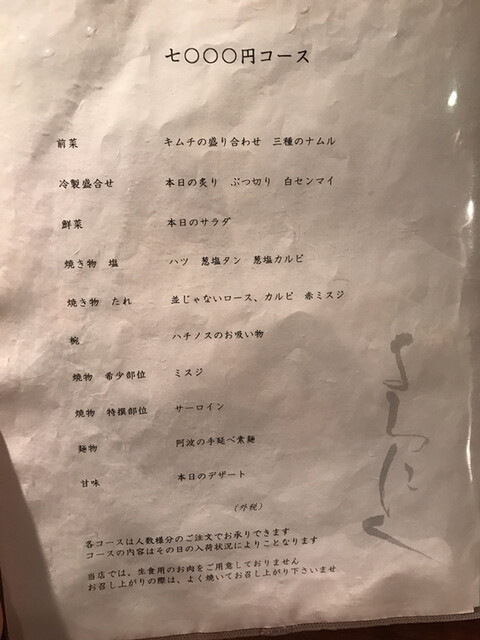 七〇〇〇円コース
前菜 キムチの盛り合わせ 三種のナムル
冷製盛合せ 本日の炙り ぶつ切り 白センマイ
鮮菜 本日のサラダ
焼き物 塩 ハツ 葱塩タン 葱塩カルビ
焼き物 たれ 並じゃないロース、カルビ 赤ミスジ
椀 ハチノスのお吸い物
焼物 希少部位 ミスジ
焼物 特撰部位 サーロイン
麺物 阿波の手延べ素麺
甘味 本日のデザート
(外税)
各コースは人数様分のご注文でお承りできます
コースの内容はその日の入荷状況によりことなります
当店では、生食用のお肉をご用意しておりません
お召し上がりの際は、よく焼いてお召し上がり下さいませ
よろにく